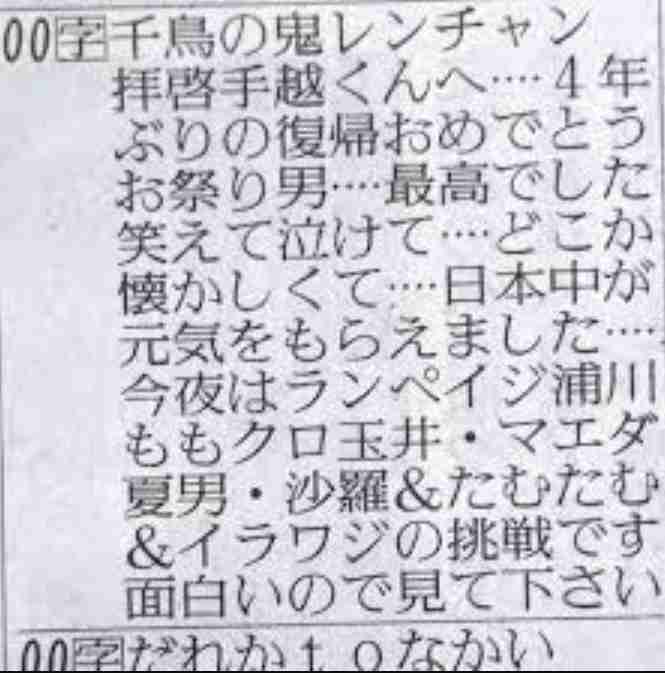 00字千鳥の鬼レンチャン
拝啓手越くんへ‥‥4年
ぶりの復帰おめでとう
お祭り男‥‥最高でした
笑えて泣けて‥‥どこか
懐かしくて‥‥日本中が
元気をもらえました‥‥
今夜はランペイジ浦川
ももクロ玉井・マエダ
夏男・沙羅&たむたむ
&イラワジの挑戦です
面白いので見て下さい
00字だれかtoなかい